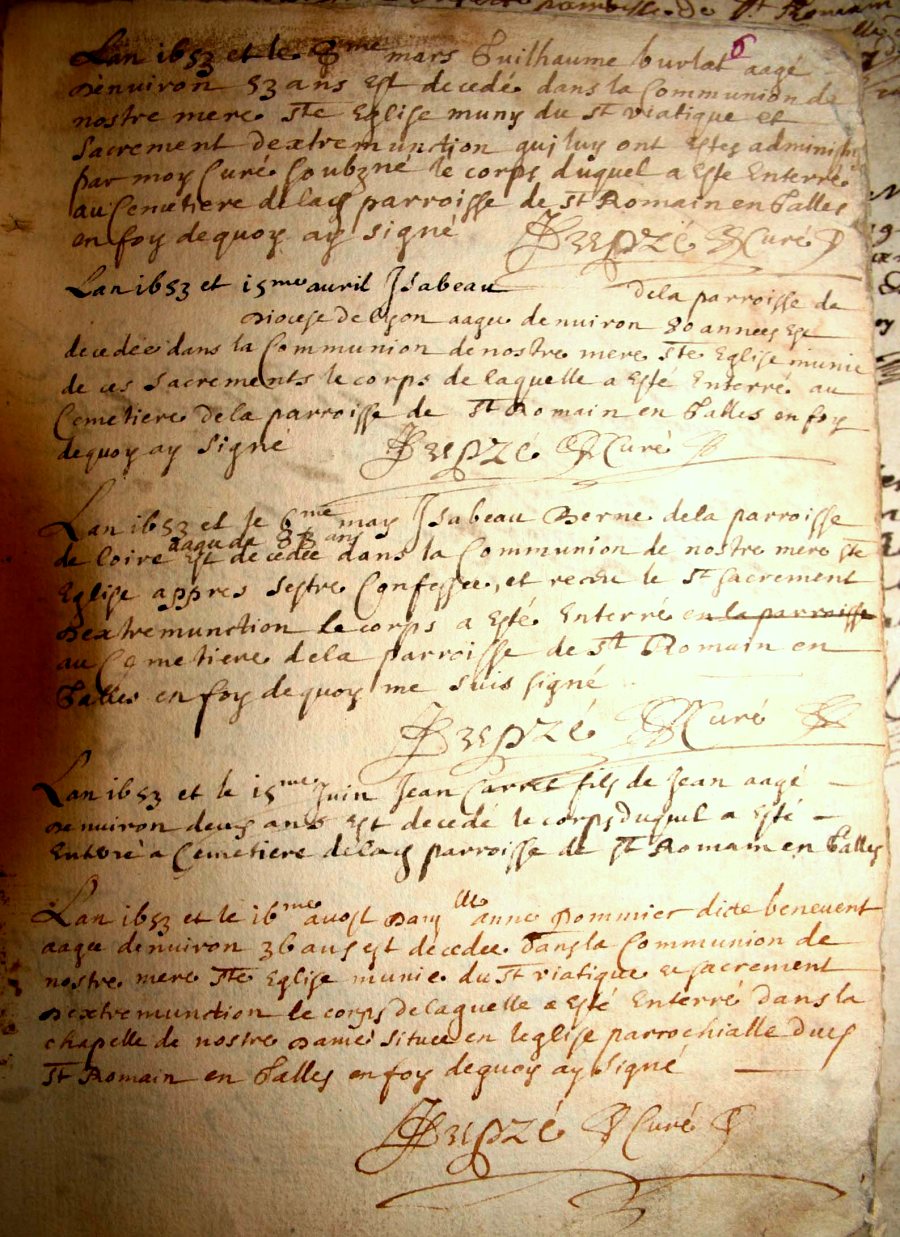 parroisse de St Romain
6
Lan 1653 et le 8me mars Guilhaume burlat aagé
denuiron 53 ans est decedé dans la Communion de
nostre mere Ste Eglise muny du St viatique et
Sacrement dextremunction qui luy ont estes administres
par moy Curé Soubzné le corps duquel a este Enterré
au Cemetiere de lad parroisse de St Romain en Jalles
en foy dequoy ay signé Curé
Lan 1653 et 15me auril Isabeau dela parroisse de
Diocese de Lyon aagee denuiron 80 annees est
decedée dans la Communion de nostre mere Ste Eglise munie
de ces Sacrements le corps de laquelle a esté Enterré au
Cemetiere dela parroisse de St Romain en Jalles en foy
dequoy ay signé Curé
Lan 1653 et le 6me may Isabeau Berne dela parroisse
aagee de ans
de loire est decedée dans la Communion de nostre mere Ste
Eglise appres sestre Confessee, et receu le St sacrement
dextremunction le corps a esté Enterré en la parroisse
au Cemetiere dela parroisse de St Romain en
Jalles en foy de quoy me suis signé
Curé
Lan 1653 et le 15me Juin Jean Carret fils de Jean aagé
denuiron deux ans est decedé le corps duquel a esté
Enterré a Cemetiere de lad parroisse de St Romain en Jalles
Lan 1653 et le 16me aoust Damlle anne Pommier dicte beneuent
aagee denuiron 36 ans est decedee dans la Communion de
nostre mere Ste Eglise munie du St viatique et sacrement
dextremunction le corps de laquelle a esté Enterré dans la
chapelle de nostre dame situee en leglise parrochialle dud
St Romain en Jalles en foy dequoy ay signé
Curé